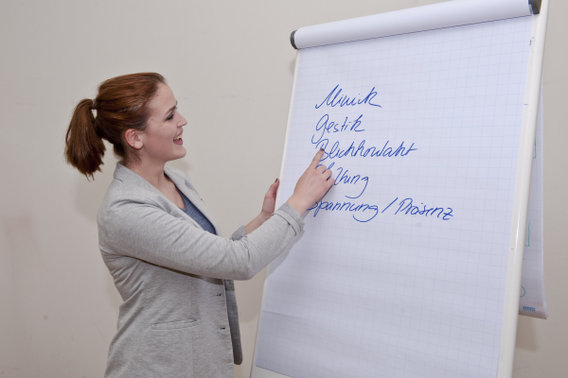 Mimik
Gestik
Blickkontakt
Haltung
Spannung / Präsenz